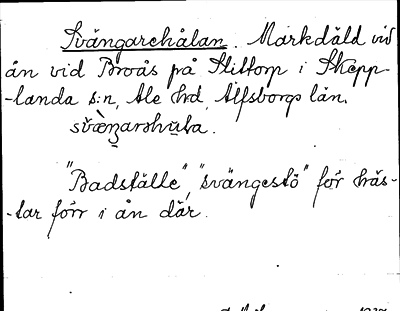 Svängarehålan. Markdäld vid
ån vid Broås på Slittorp i Skepp-
-landa s:n, Ale hrd, Älfsborgs län.
"Badställe", "svängestö" för häs-
-tar förr i ån där.